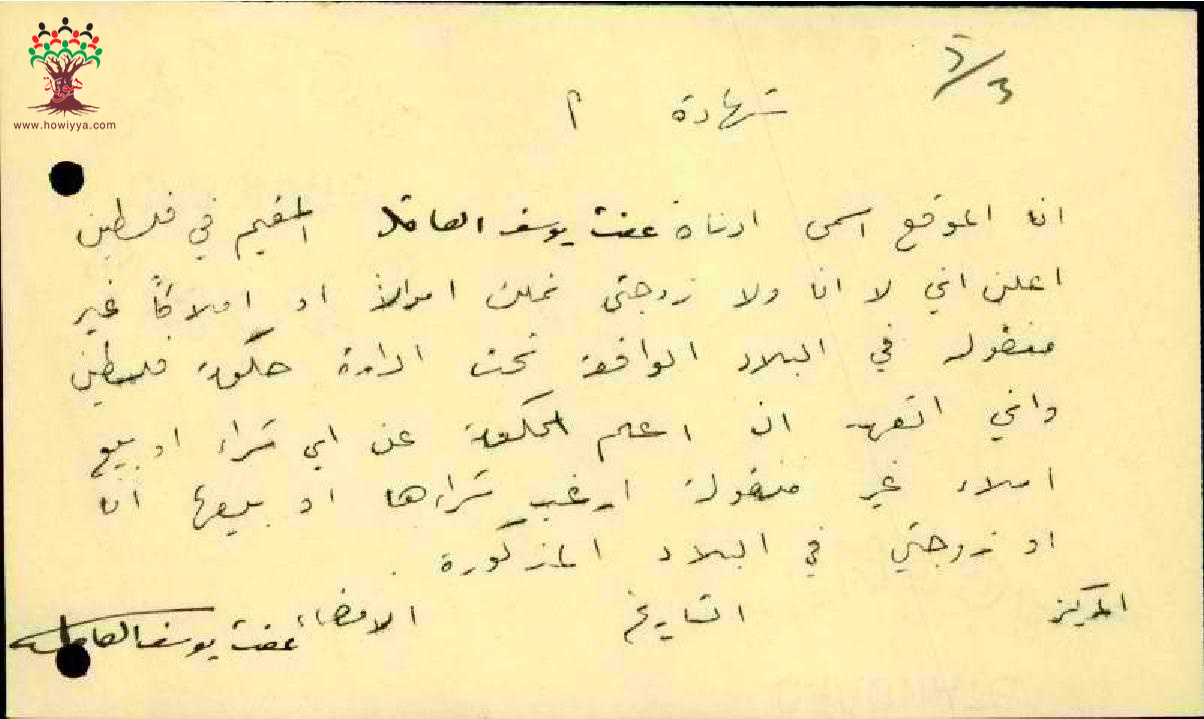 هوية
www.howiyya.com
شهادة م
انا الموقع اسمى ادناه عفت يوسف العاقل المقيم في فلسطين
اعلن اني لا انا ولا زوجتي نملك اموالاً او املاكاً غير
منقوله في البلاد الواقعة تحت ادارة حكومة فلسطين
واني اتعهد ان اعلم الحكومة عن اي شراء او بيع
املاك غير منقولة ارغب شراءها او بيعها انا
او زوجتي في البلاد المذكورة .
المركز التاريخ الامضاء عفت يوسف العاقل